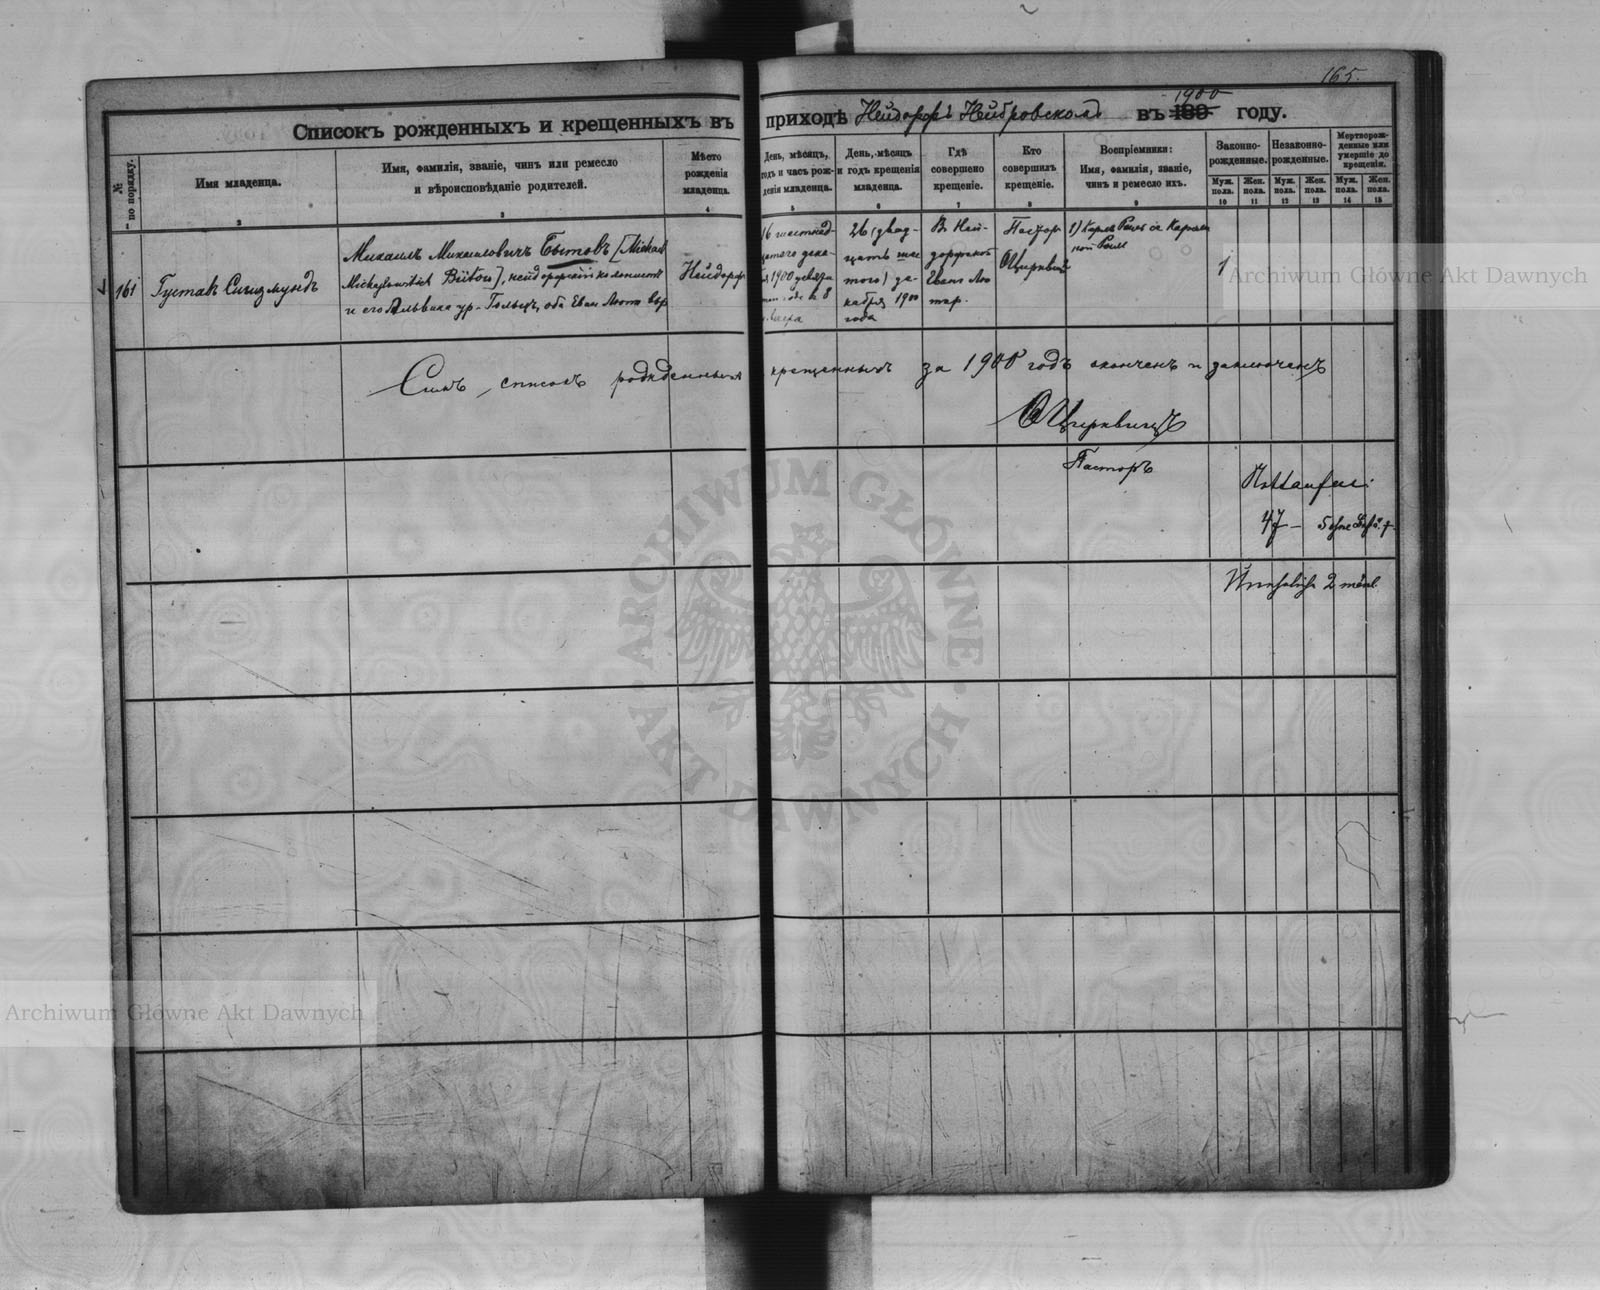 165.
Списокъ рожденныхъ и крещенныхъ въ приходѣ Нейдорфъ Нейбровскомъ въ 189 1900 году.
№ по порядку.
Имя младенца.
Имя, фамилія, званіе, чинъ или ремесло
и вѣроисповѣданіе родителей.
Мѣсто
рожденія
младенца.
День, мѣсяцъ,
годъ и часъ рож-
денія младенца.
День, мѣсяцъ
и годъ крещенія
младенца.
Гдѣ
совершено
крещеніе.
Кто
совершилъ
крещеніе.
Воспріемники:
Имя, фамилія, званіе,
чинъ и ремесло ихъ.
Законно-
рожденные.
Незаконно-
рожденные.
Мертворож-
денные или
умершіе до
крещенія.
Муж. пола.
Жен. пола.
Муж. пола.
Жен. пола.
Муж. пола.
Жен. пола.
1 2 3 4 5 6 7 8 9 10 11 12 13 14 15
161
Густавъ Сигизмундъ
Михаилъ Михаиловичъ Бытовъ [Michael
Michajlowitsch Bütow], нейдорфскій колонистъ
и его Альвина ур. Гольцъ, оба Еван. Лют. вѣр
Нейдорфъ
16 шестнад-
цатого дека-
1900 девять
8
вечера
26 (двад-
цать шес
того) де-
кабря 1900
года
Въ Ней-
дорфской
Еванг. Лю
тер.
Пасторъ
ОЦирквицъ
1) Карлъ Рель
1
Симъ списокъ рожденныхъ крещенныхъ за 1900 годъ оконченъ и заключенъ
ОЦирквицъ
Пасторъ
Nottaufen:
47 –
Unehelich 2 mal.
ARCHIWUM GŁÓWNE AKT DAWNYCH
Archiwum Główne Akt Dawnych
Archiwum Główne Akt Dawnych